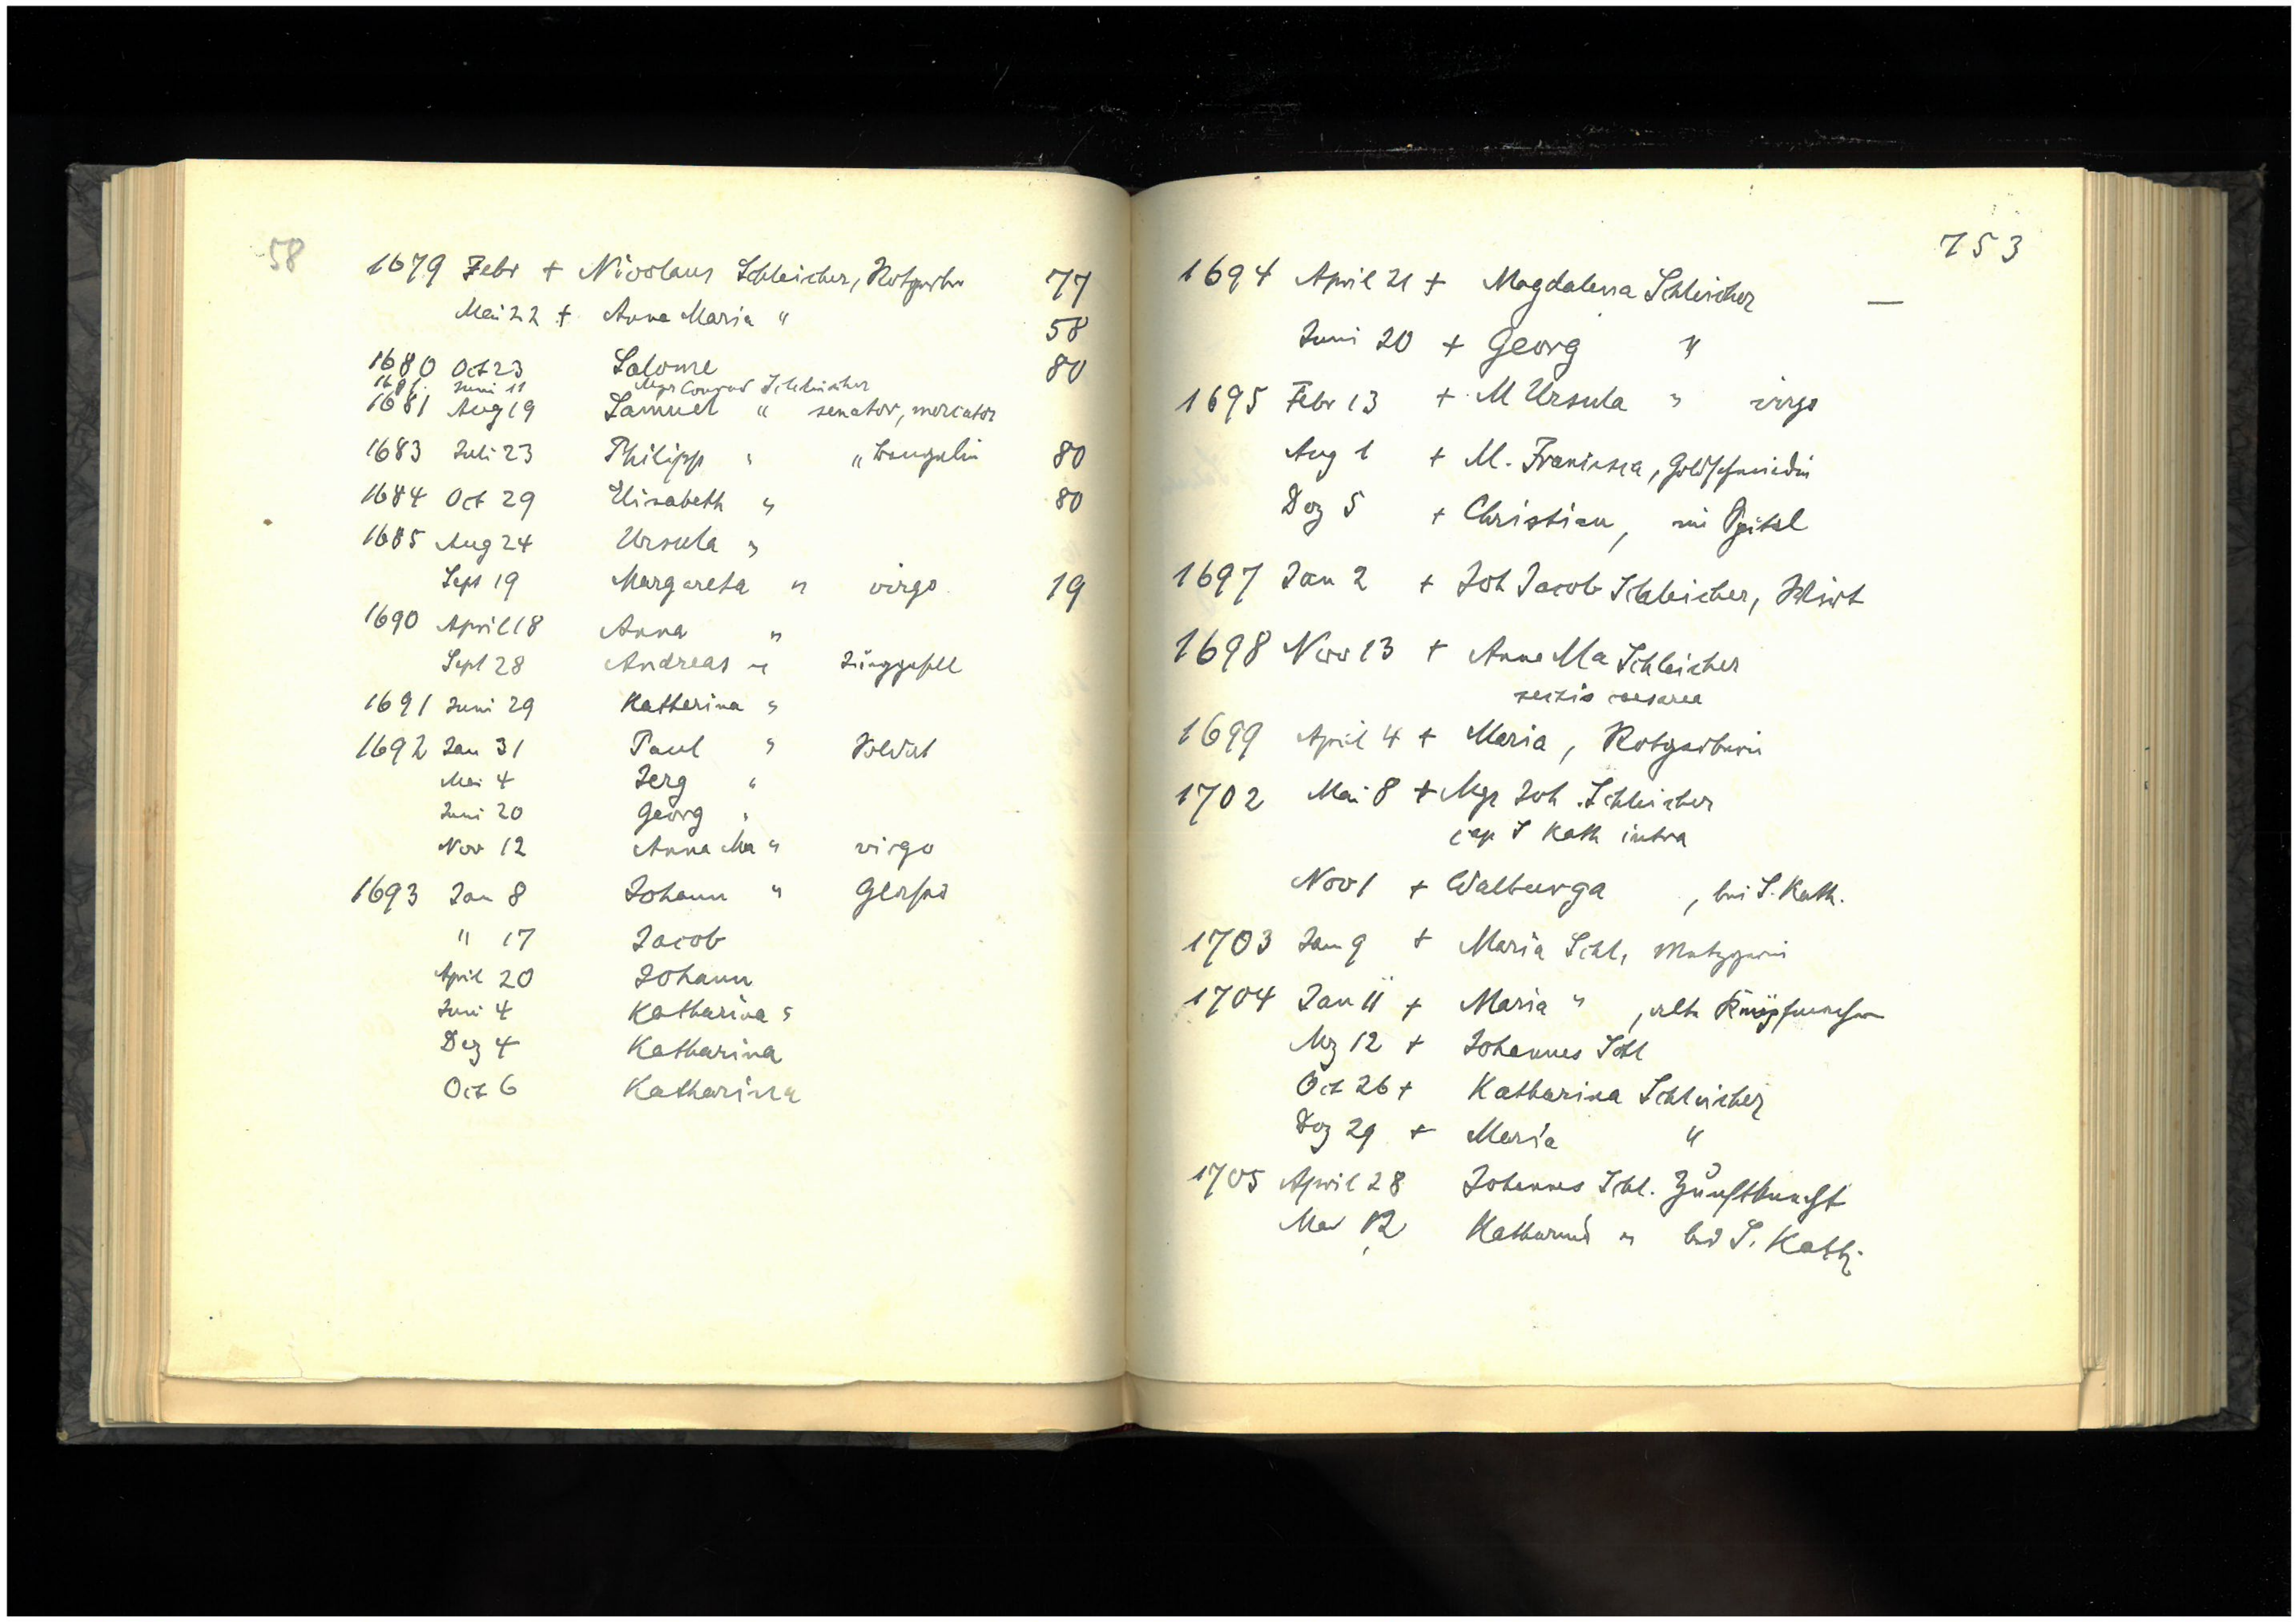 58
1679 Febr + Nicolaus Schleicher, Rotgerber 77
Mai 22 + Anna Maria " 58
1680 Oct 23 Salome 80
1681 Juni 11 Mgr Conrad Schleicher
1681 Aug 19 Samuel " senator, mercator
1683 Juli 23 Philipp " " 80
1684 Oct 29 Elisabeth " 80
1685 Aug 24 Ursula "
Sept 19 Margareta " virgo 19
1690 April 18 Anna "
Sept 28 Andreas " Junggesell
1691 Juni 29 Katharina "
1692 Jan 31 Paul " Soldat
Mai 4 Jerg "
Juni 20 Georg "
Nov 12 Anna Ma " virgo
1693 Jan 8 Johann " Glaser
" 17 Jacob
April 20 Johann
Juni 4 Katharina "
Dez 4 Katharina
Oct 6 Katharina
753
1694 April 21 + Magdalena Schleicher —
Juni 20 + Georg "
1695 Febr 13 + M Ursula " virgo
Aug 1 + M. Francisca, Goldschmidin
Dez 5 + Christian, im Spital
1697 Jan 2 + Joh Jacob Schleicher, Wirt
1698 Nov 13 + Anna Ma Schleicher
caesarea
1699 April 4 + Maria, Rotgerberin
1702 Mai 8 + Mgr Joh. Schleicher
cap S Kath intra
Nov 1 + Walburga , bei S. Kath.
1703 Jan 9 + Maria Schl, Metzgerin
1704 Jan 11 + Maria " , alte
Mz 12 + Johannes Schl
Oct 26 + Katharina Schleicher
Dez 29 + Maria "
1705 April 28 Johannes Schl. Zunftknecht
Mai 12 Katharina " bei S. Kath.